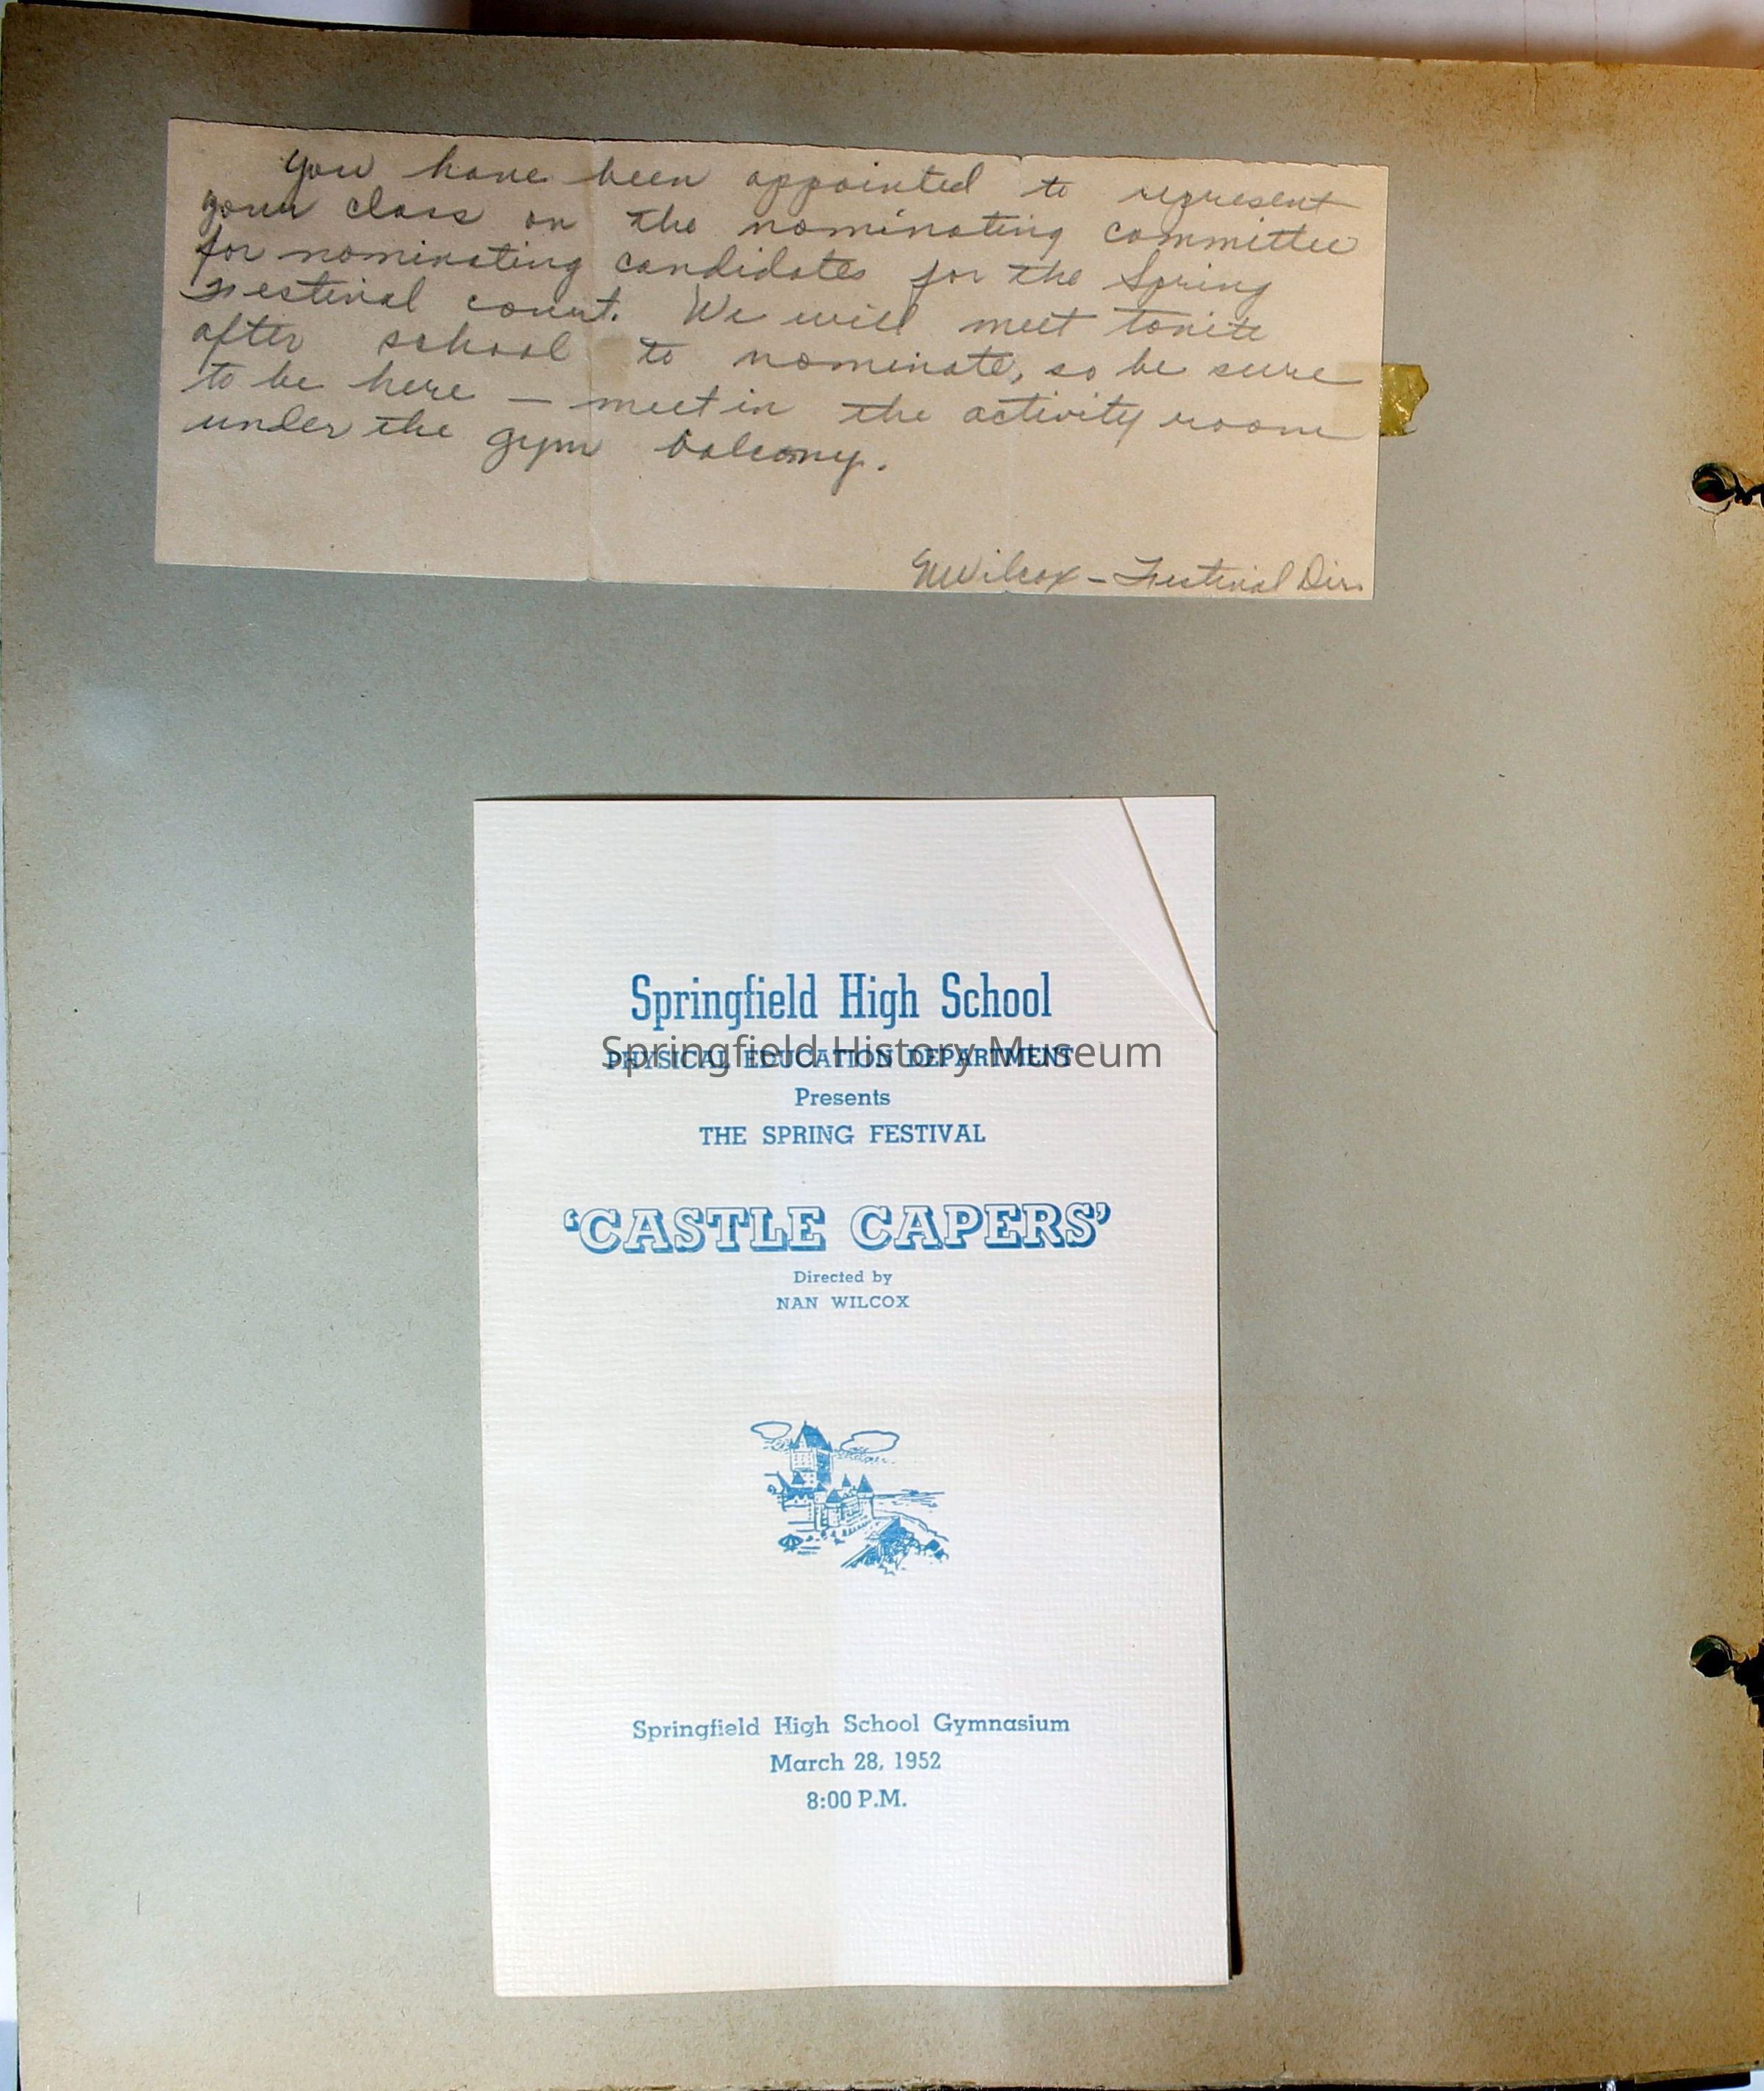 You have been appointed to represent
your class on the nominating committee
for nominating candidates for the Spring
Festival court. We will meet tonite
after school to nominate, so be sure
to be here — meet in the activity room
under the gym balcony.
Wilcox - Festival Dir.
Springfield High School
Springfield History Museum
PHYSICAL EDUCATION DEPARTMENT
Presents
THE SPRING FESTIVAL
'CASTLE CAPERS'
Directed by
NAN WILCOX
Springfield High School Gymnasium
March 28, 1952
8:00 P.M.